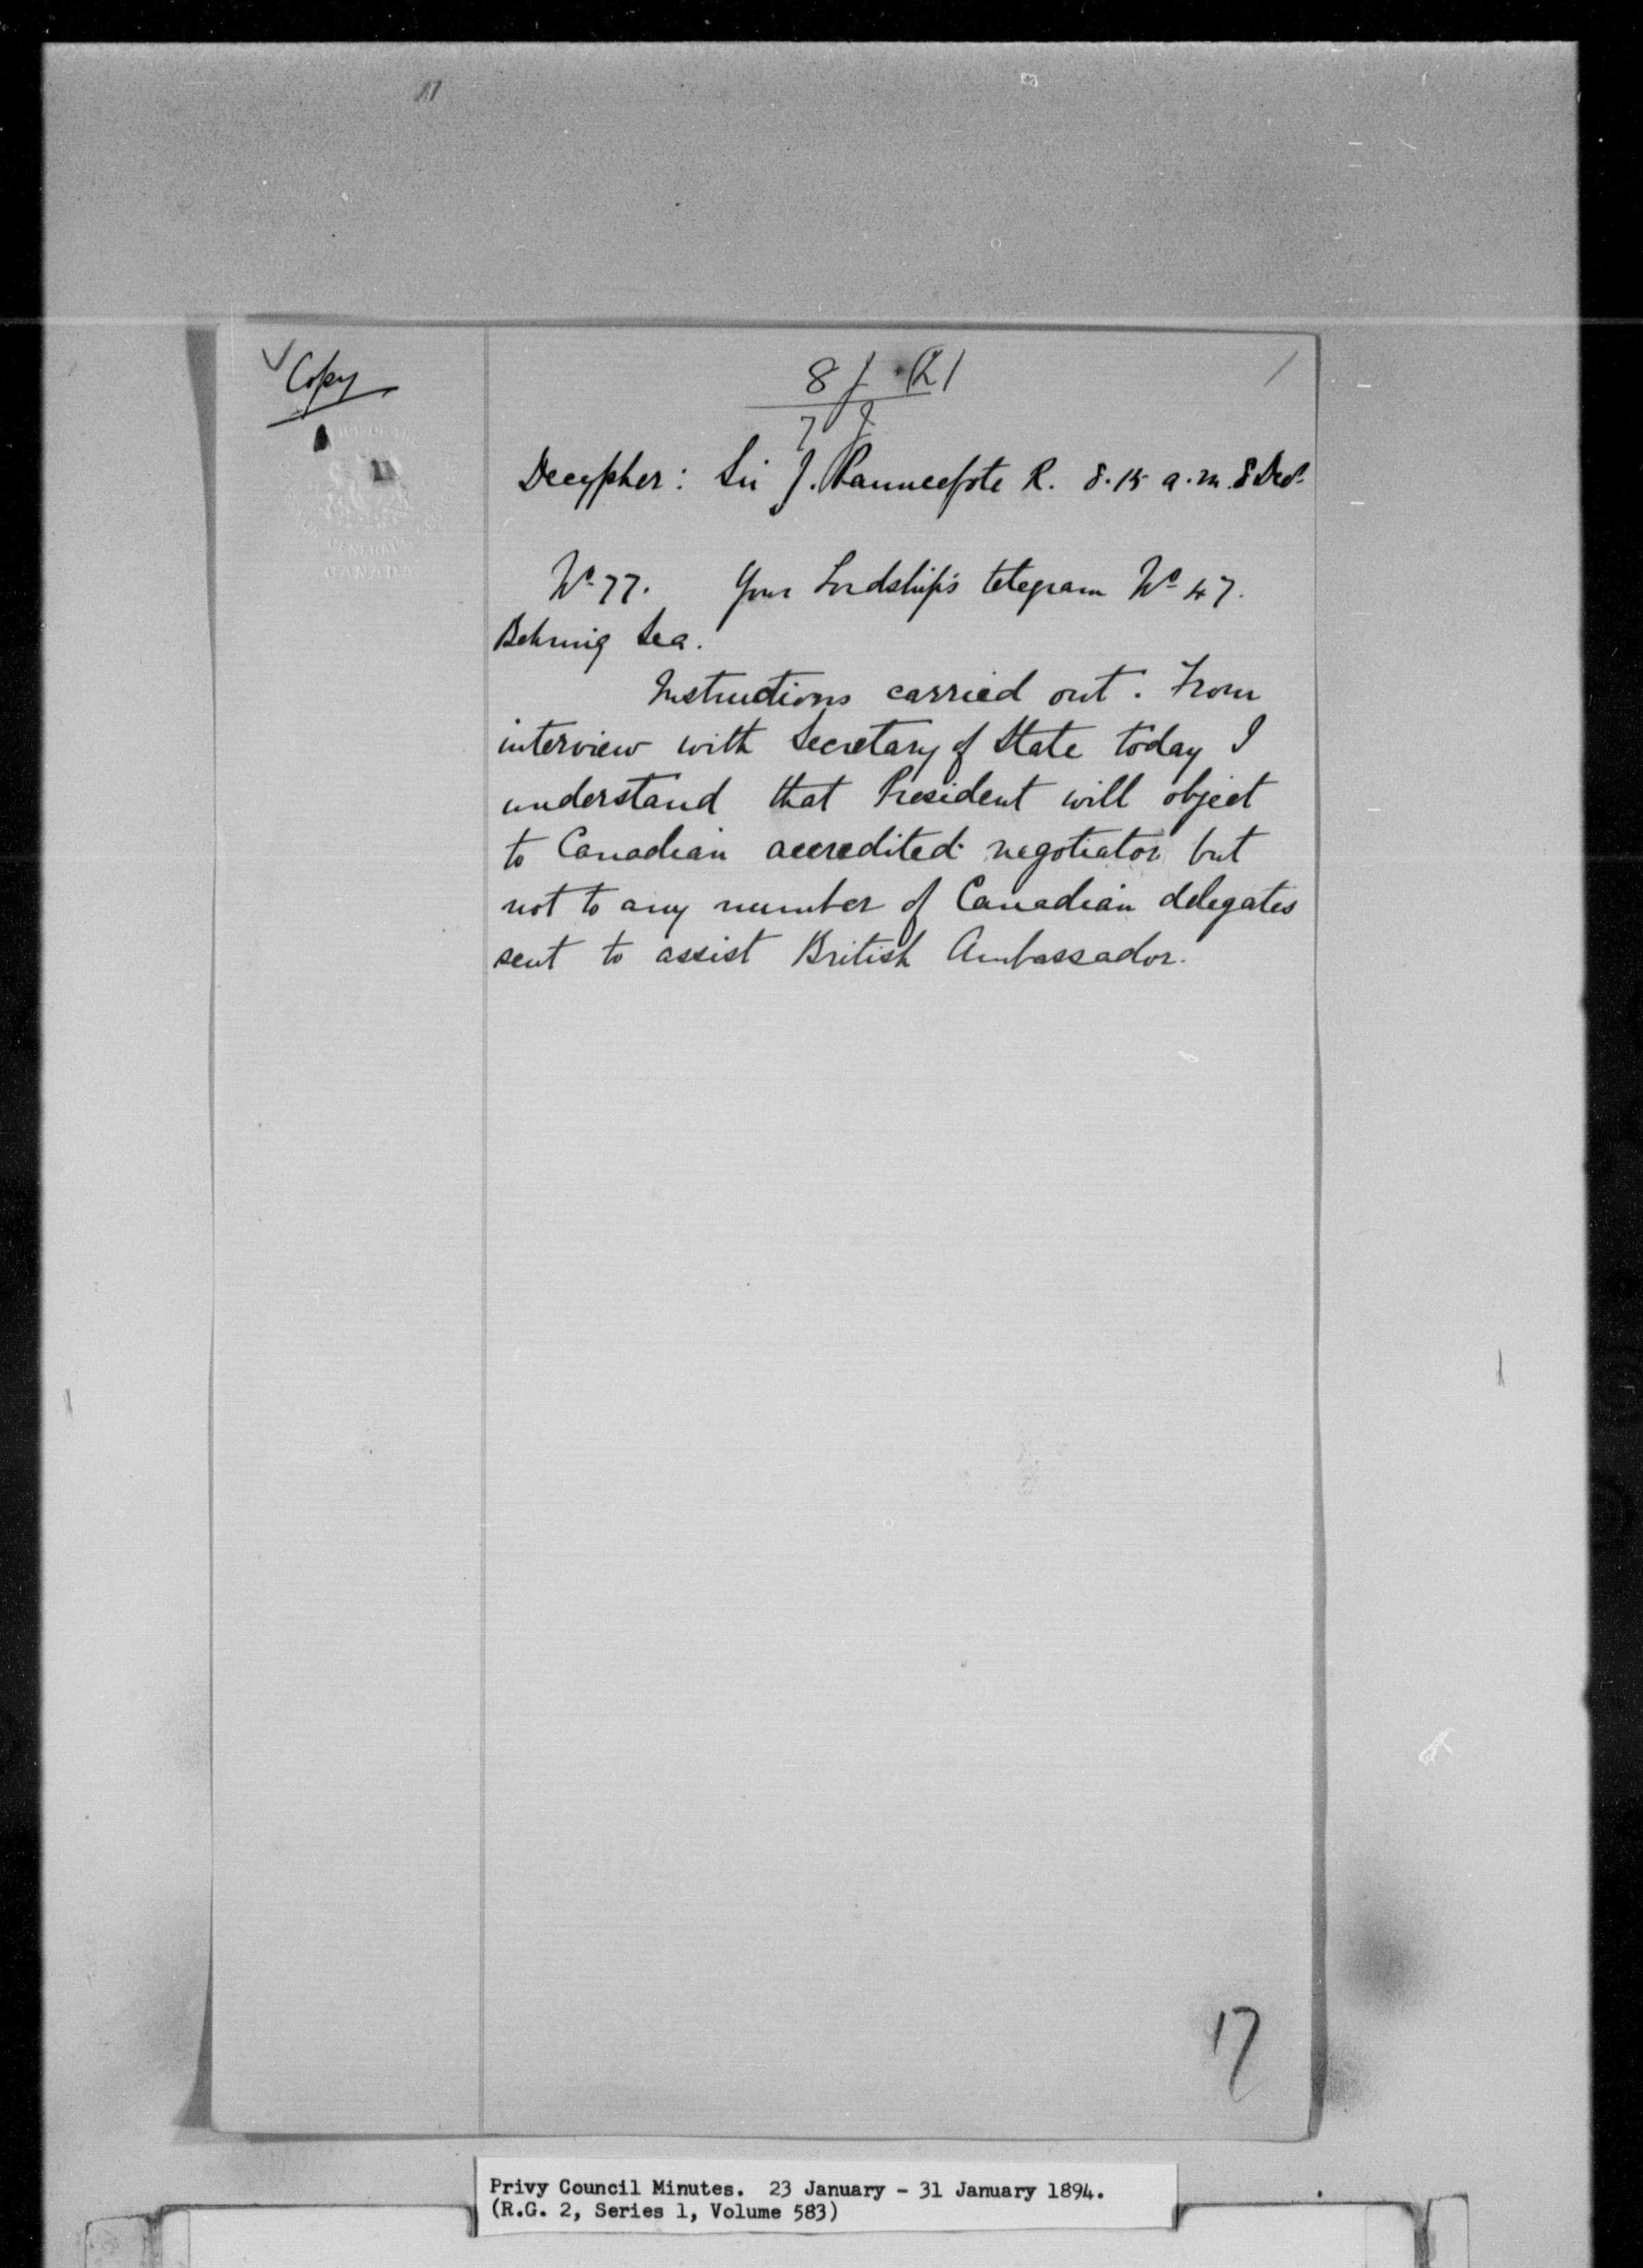 Copy
Decypher: Sir J. Pauncefote R. 8.15 a.m. 8 Decr.
No 77. Your Lordship's telegram No 47.
Behring Sea.
Instructions carried out. From
interview with Secretary of State today I
understand that President will object
to Canadian accredited negotiator but
not to any number of Canadian delegates
sent to assist British Ambassador.
17
Privy Council Minutes. 23 January - 31 January 1894.
(R.G. 2, Series 1, Volume 583)